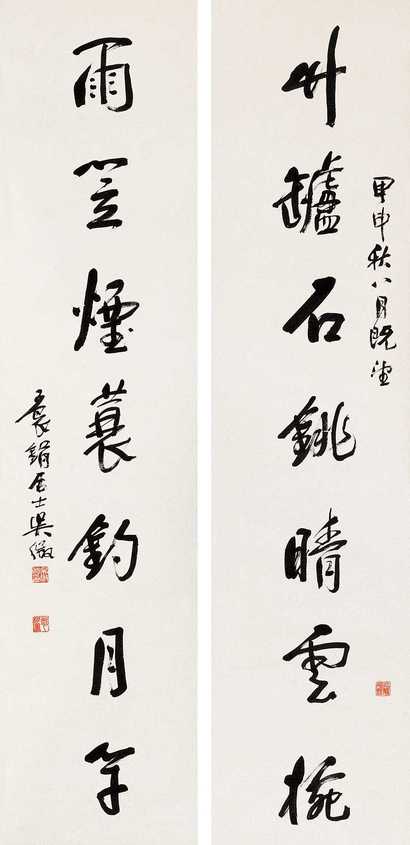 甲申秋八月既望
竹罏石銚晴雲椀
雨笠煙蓑釣月竿
袌鋗居士吳徵